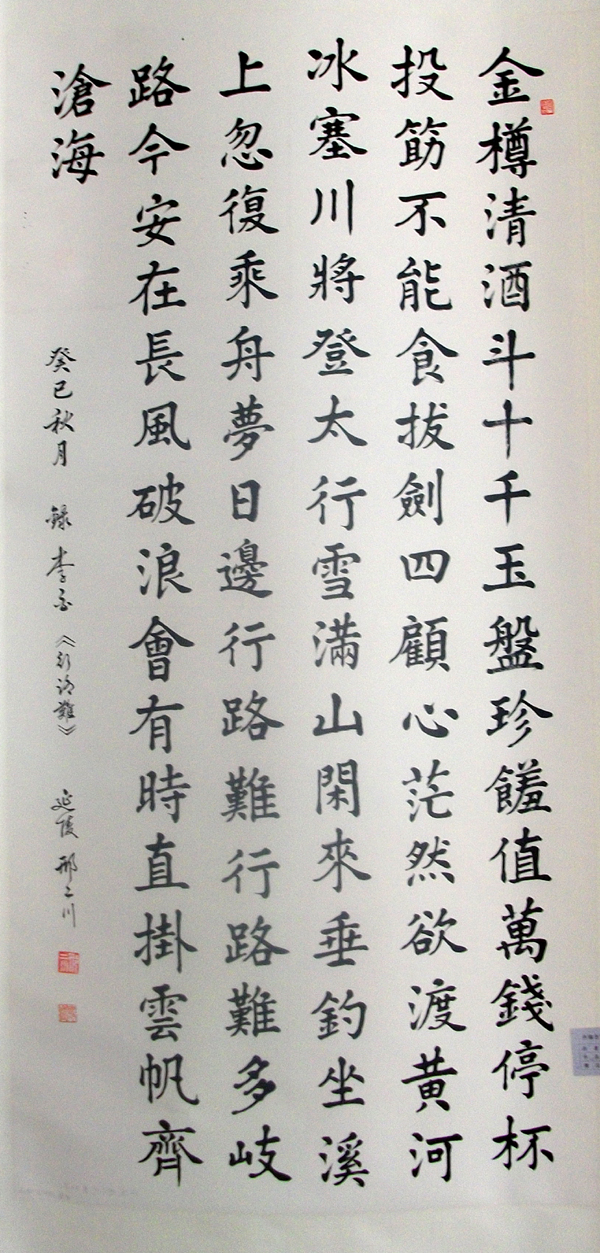 金樽清酒斗十千玉盤珍饈值萬錢停杯
投筯不能食拔劍四顧心茫然欲渡黃河
冰塞川將登太行雪滿山閑來垂釣坐溪
上忽復乘舟夢日邊行路難行路難多岐
路今安在長風破浪會有時直掛雲帆齊
滄海
癸巳秋月 錄李白《行路難》 延陵邢二川